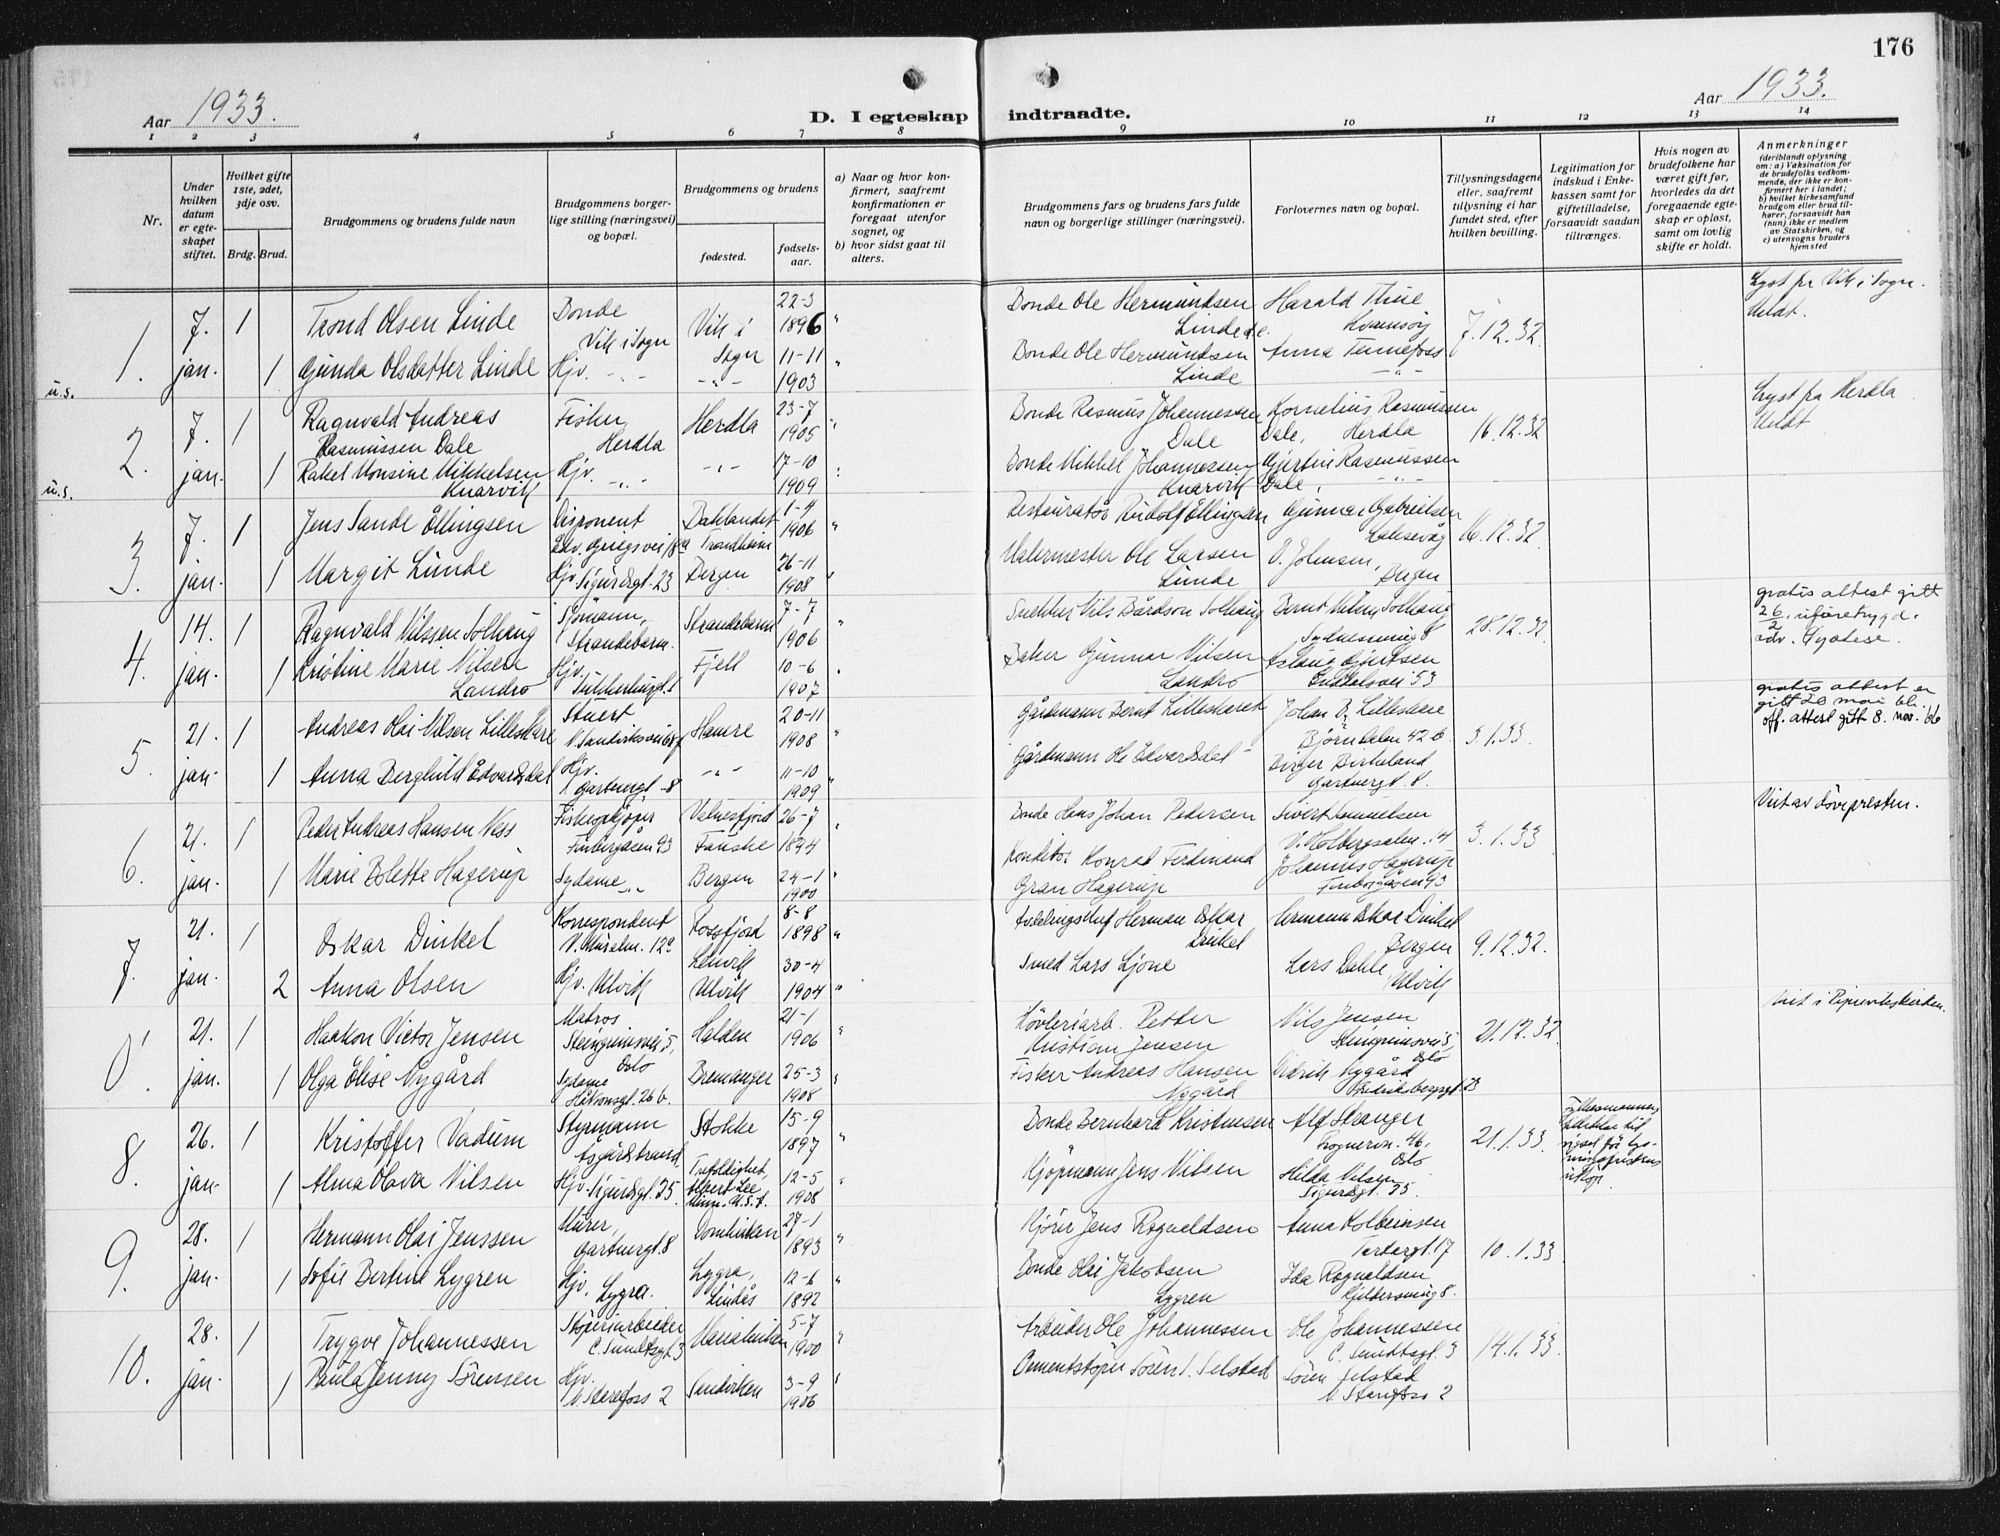 176
Aar 1933.
D. I egteskap indtraadte.
Aar 1933.
1 2 3 4 5 6 7 8 9 10 11 12 13 14
Nr.
Under hvilken datum er egteskapet stiftet.
Hvilket gifte 1ste, 2det, 3dje osv.
Brdg. Brud.
Brudgommens og brudens fulde navn
Brudgommens borgerlige stilling (næringsvei) og bopæl.
Brudgommens og brudens
fødested.
fødselsaar.
a) Naar og hvor konfirmert, saafremt konfirmationen er foregaat utenfor sognet, og
b) hvor sidst gaat til alters.
Brudgommens fars og brudens fars fulde navn og borgerlige stillinger (næringsvei).
Forlovernes navn og bopæl.
Tillysningsdagene eller, saafremt tillysning ei har fundet sted, efter hvilken bevilling.
Legitimation for indskud i Enkekassen samt for giftetilladelse, forsaavidt saadan tiltrænges.
Hvis nogen av brudefolkene har været gift før, hvorledes da det foregaaende egteskap er opløst, samt om lovlig skifte er holdt.
Anmerkninger
(deriblandt oplysning om: a) Vaksination for de brudefolks vedkommende, der ikke er konfirmert her i landet; b) hvilket kirkesamfund brudgom eller brud tilhører, forsaavidt han (hun) ikke er medlem av Statskirken, og c) utensogns bruders hjemsted
1. 7. jan. 1 Trond Olsen Linde Bonde Vik i Sogn Vik i Sogn 22-3 1896 " Bonde Ole Hermundsen Linde Harald Thue Kvamsøy 7.12.32 Lyst fra Vik i Sogn. Meldt.
u.s. 1 Gunda Olsdatter Linde Hjv. -"- -"- 11-11 1903 " Bonde Ole Hermundsen Linde Anna Tennefoss -"-
2. 7. jan. 1 Ragnvald Andreas Rasmussen Dale Fisker Herdla Herdla 23-7 1905 " Bonde Rasmus Johannessen Dale Kornelius Rasmussen Dale, Herdla 16.12.32 Lyst fra Herdla Meldt
u.s. 1 Rakel Monsine Mikkelsen Knarvik Hjv. -"- -"- 17-10 1909 Bonde Mikkel Johannessen Knarvik Gjertin Rasmussen Dale, -"-
3. 7. jan. 1 Jens Sande Ellingsen Disponent Edv. Griegsvei 18a Trondheim 1-9 1906 " Restauratør Rudolf Ellingsen Gunnar Gabrielsen Laksevåg 16.12.32
1 Margit Lunde Hjv. Sigurdsgt. 23 Bergen 26-11 1908 " Malermester Ole Larsen Lunde O. Johnsen, Bergen
4. 14. jan. 1 Ragnvald Nilssen Solhaug Sjømann, Strandebarm. Strandebarm 7-7 1906 " Snekker Nils Bårdson Solhaug Bernt Solhaug 28.12.32 gratis attest gitt 26/2 uføretrygd.
1 Kristine Marie Nilsen Landro Hjv. Fjell 10-6 1907 Baker Gunnar Nilsen Landro Aslaug Gjertsen 53
5. 21. jan. 1 Andreas Olai Nilsen Lilleskare Stuert N. Sandviksvei 68 Hamre 20-11 1908 " Gårdmann Bernt Lilleskaret Johan B. Lilleskare Bjørndalen 42 b 3.1.33. gratis attest er gitt 20 mai bli. off. attest gitt 8. nov. '66
1 Anna Berghild Edvardsdal Hjv. Gartnergt. 8 -"- 11-10 1909 " Gårdmann Ole Edvardsdal Birger Birkeland Gartnergt. 8.
6. 21. jan. 1 Peder Andreas Hansen Næss Fiskeopkjøper 93 Valnesfjord Fauske 26-7 1894 " Bonde Hans Johan Pedersen Sivert V. Holbergsalm. 14 3.1.33 Viet av døvepresten.
1 Marie Bolette Hagerup Sydame -"- Bergen 24-1 1900 " Konditor Konrad Ferdinand Gran Hagerup Johannes Hagerup 93
7. 21. jan. 1 Oskar Dinkel Korrespondent 12c Rossfjord Lenvik 8-8 1898 " Avdelingschef Herman Oskar Dinkel Hermann Oskar Dinkel Bergen 9.12.32.
2 Anna Olsen Hjv. Ulvik Ulvik 30-4 1904 " Smed Lars Ljone Lars Dahle, Ulvik
0' 21. jan. 1 Haakon Victor Jensen Matros Steingrimsvei 5, Oslo Halden 21-1 1906 " Høvleriarb. Petter Kristian Jensen Nils Jensen Steingrimsvei 5, Oslo 21.12.32 Viet i Pipervikskirken.
1 Olga Elise Nygård Sydame Håkonsgt. 26 b. Bremanger 25-3 1908 " Fisker Andreas Hansen Nygård Didrik Nygård Fredriksbergsgt. 23
8. 26. jan. 1 Kristoffer Vadum Styrmann Åsgårdstrand, Stokke 15-9 1897 " Bonde Bernhard L Kristensen Alf Stranger Frognervn. 46, Oslo 21.1.33
1 Alma Olava Nilsen Hjv. Sigurdsgt. 25 Trefoldighet, Albert Lee, Minn. U.S.A. 12-5 1908 " Kjøpmann Jens Nilsen Hilda Nilsen Sigurdsgt. 25.
9. 28. jan. 1 Hermann Olai Jenssen Murer, Gartnergt. 8 Domkirken 27-1 1893 " Kjører Jens Rognaldsen Anna Kolbeinsen 17 10.1.33
1 Sofie Bertine Lygren Hjv. Lygra. Lygra, Lindås 12-6 1892 " Bonde Olai Jakobsen Lygren Ida Rognaldsen 8.
10. 28. jan. 1 Trygve Johannessen Støperiarbeider C. Sundtsgt. 3 Mariakirken 5-7 1900 " Arbeider Ole Johannessen Ole Johannessen C. Sundtsgt. 3 14.1.33.
1 Paula Jenny Sørensen Hjv. N. Starefoss 2 Sandviken 3-9 1906 " Cementstøper Søren J. Selstad Søren Selstad N. Starefoss 2